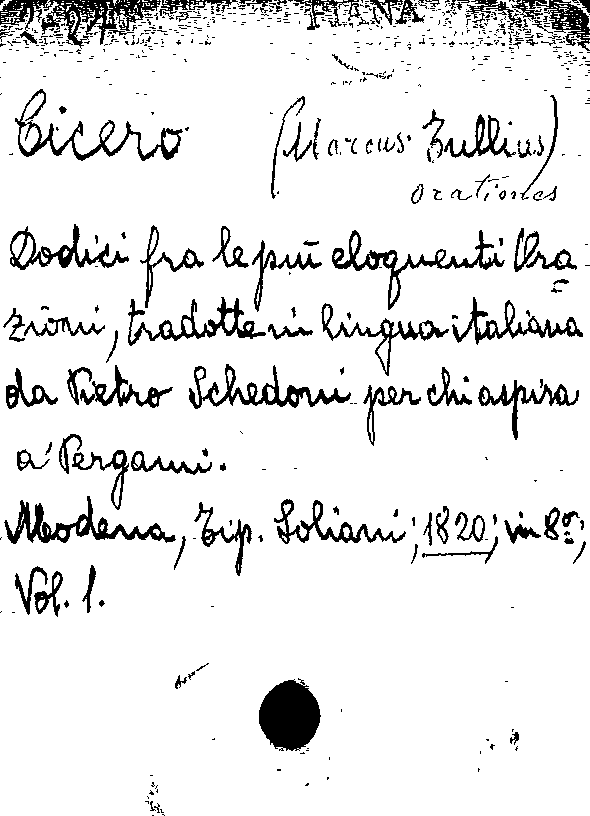 Cicero (Marcus Tullius)
orationes
Dodici fra le più eloquenti Ora=
zioni, tradotte in lingua italiana
da Pietro Schedoni per chi aspira
a' Pergami.
Modena, Tip. Soliani; 1820; in 8º;
Vol. 1.